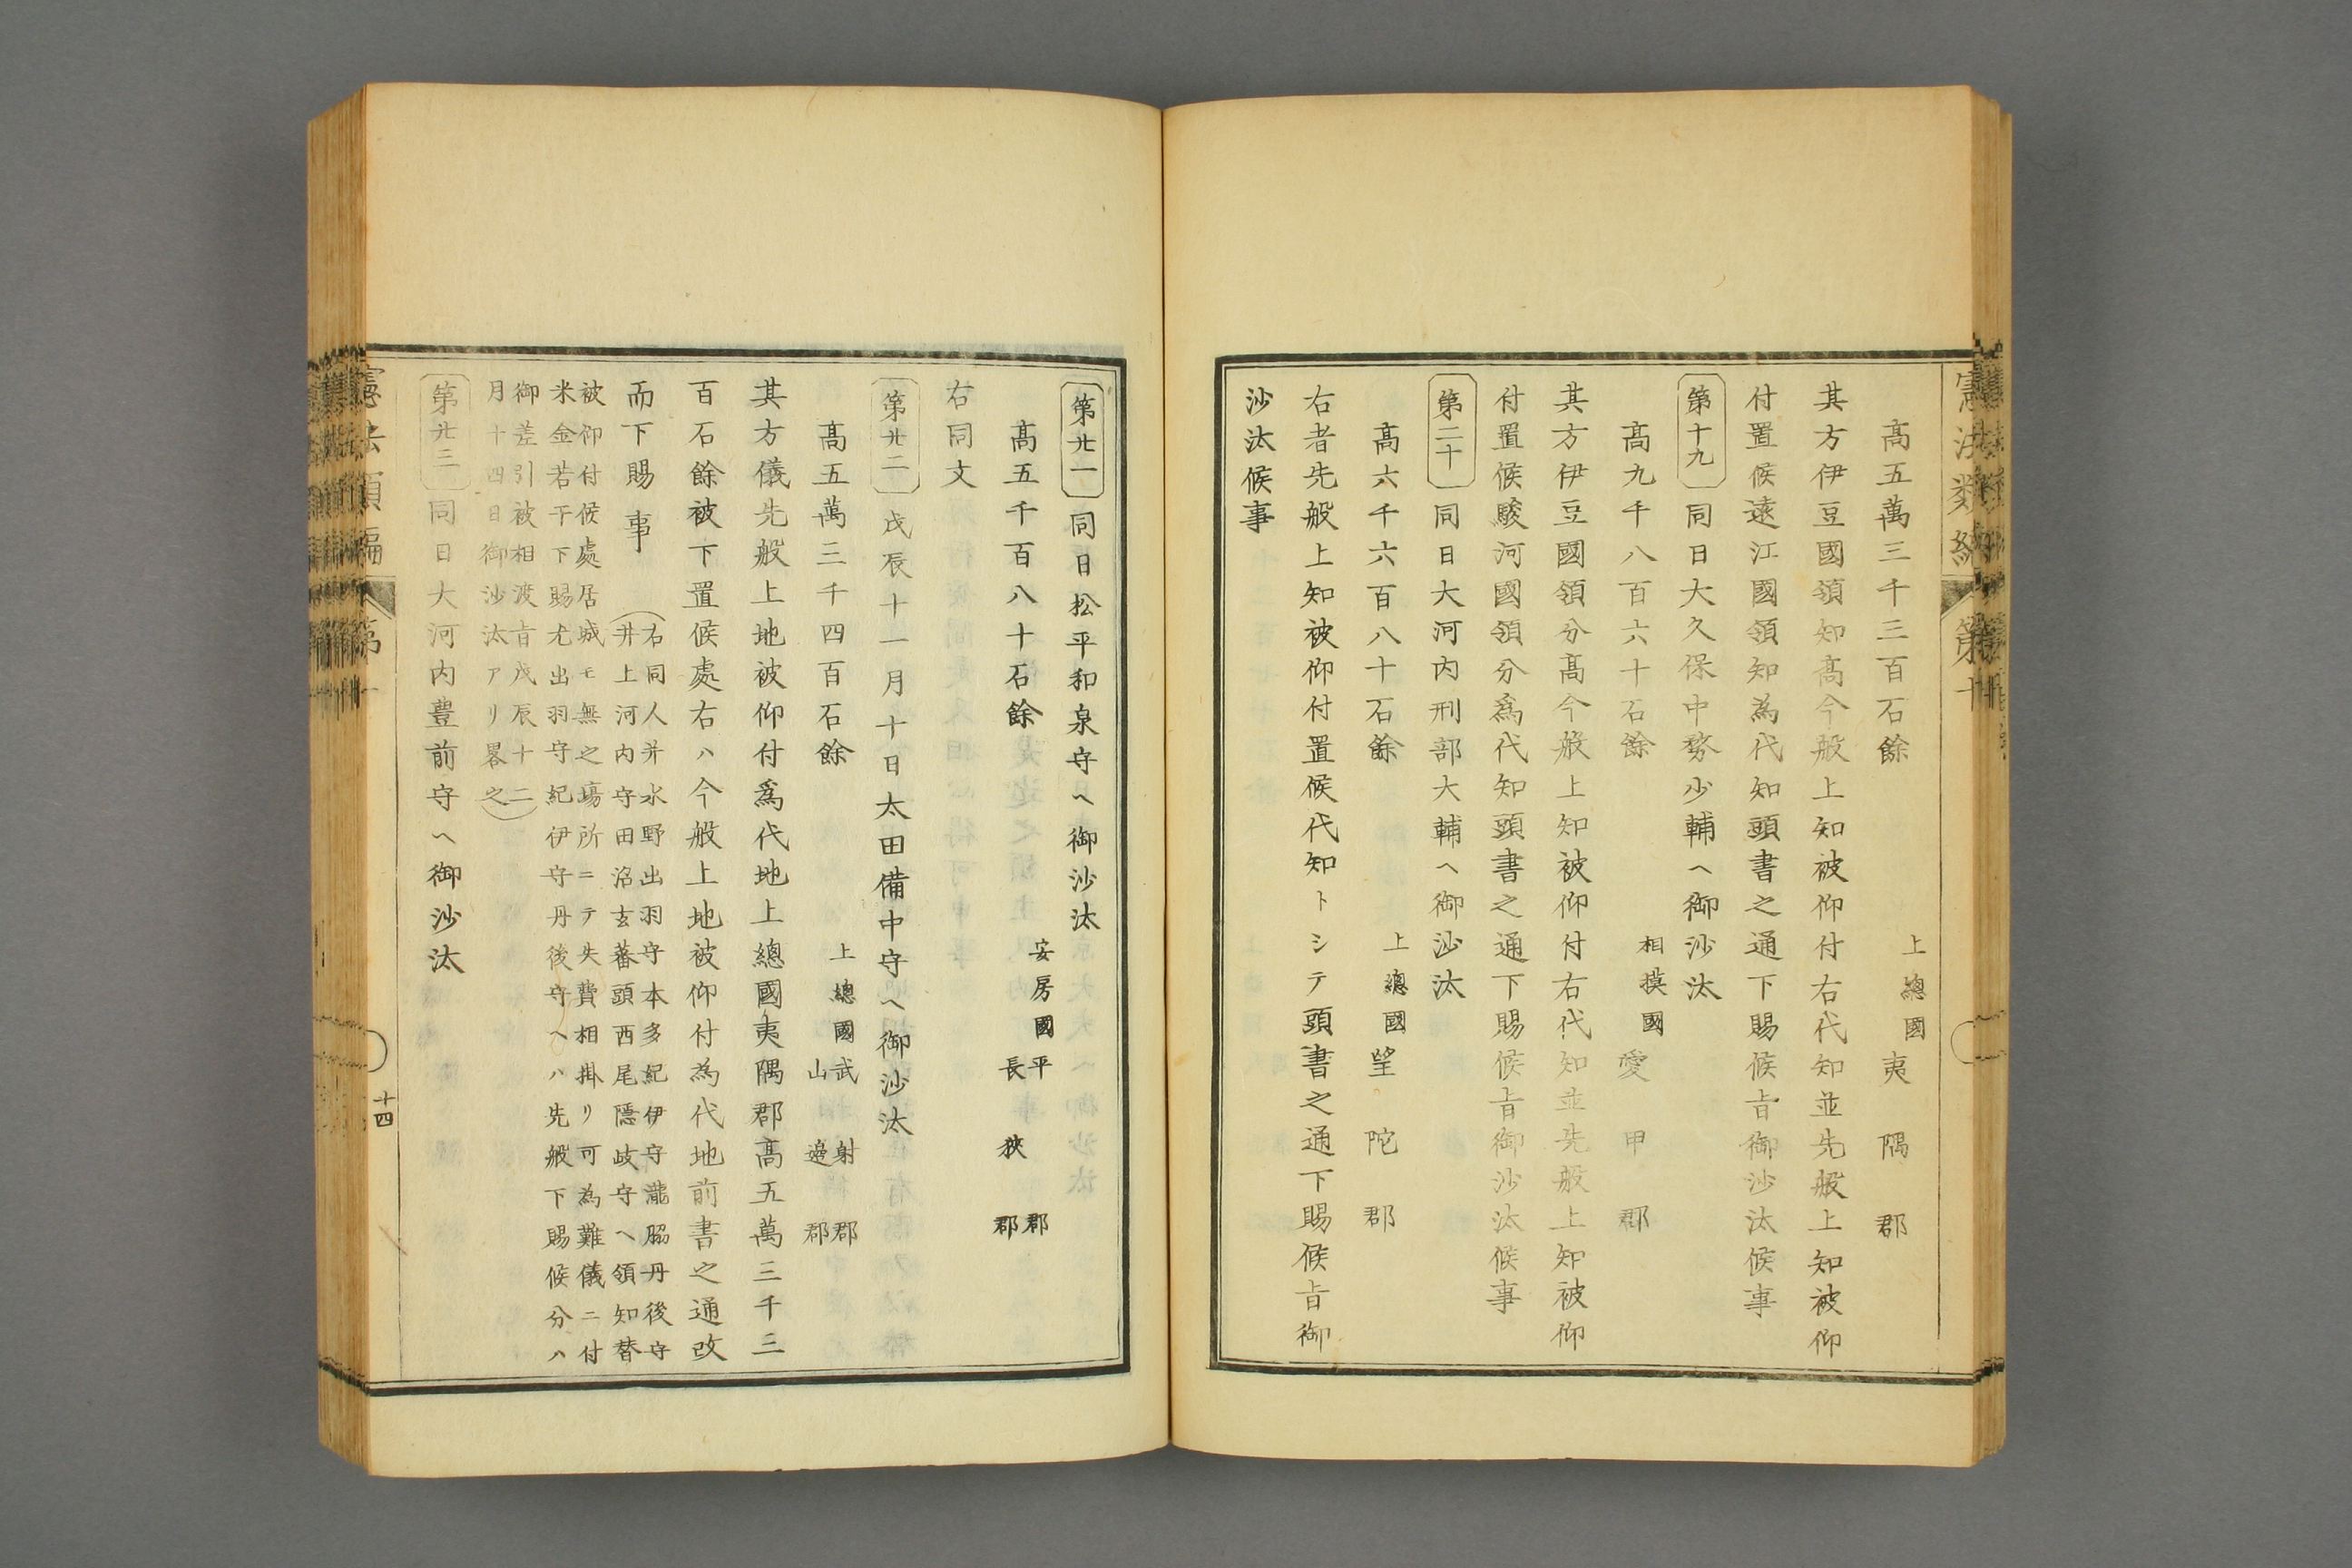 憲法類編 第十
高五萬三千三百石餘 上總國夷隅郡
其方伊豆國領知高今般上知被仰付右代知並先般上知被仰
付置候遠江國領知為代知頭書之通下賜候旨御沙汰候事
第十九 同日大久保中務少輔ヘ御沙汰
高九千八百六十石餘 相摸國愛甲郡
其方伊豆國領分高今般上知被仰付右代知並先般上知被仰
付置候駿河國領分爲代知頭書之通下賜候旨御沙汰候事
第二十 同日大河內刑部大輔ヘ御沙汰
高六千六百八十石餘 上總國望陀郡
右者先般上知被仰付置候代知トシテ頭書之通下賜候旨御
沙汰候事
第廿一 同日松平和泉守ヘ御沙汰
高五千百八十石餘 安房國平郡
長狹郡
右同文
第廿二 戊辰十一月十日太田備中守ヘ御沙汰
高五萬三千四百石餘 上總國武射郡
山邊郡
其方儀先般上地被仰付爲代地上總國夷隅郡高五萬三千三
百石餘被下置候處右ハ今般上地被仰付為代地前書之通改
而下賜事
(右同人并水野出羽守本多紀伊守瀧脇丹後守
井上河内守田沼玄蕃頭西尾隱岐守ヘ領知替
被仰付候處居城モ無之場所ニテ失費相掛リ可為難儀ニ付
米金若干下賜尤出羽守紀伊守丹後守ヘハ先般下賜候分ハ
御差引被相渡旨戊辰十二
月十四日御沙汰アリ畧之)
第廿三 同日大河内豊前守ヘ御沙汰
憲法類編 第十
十四